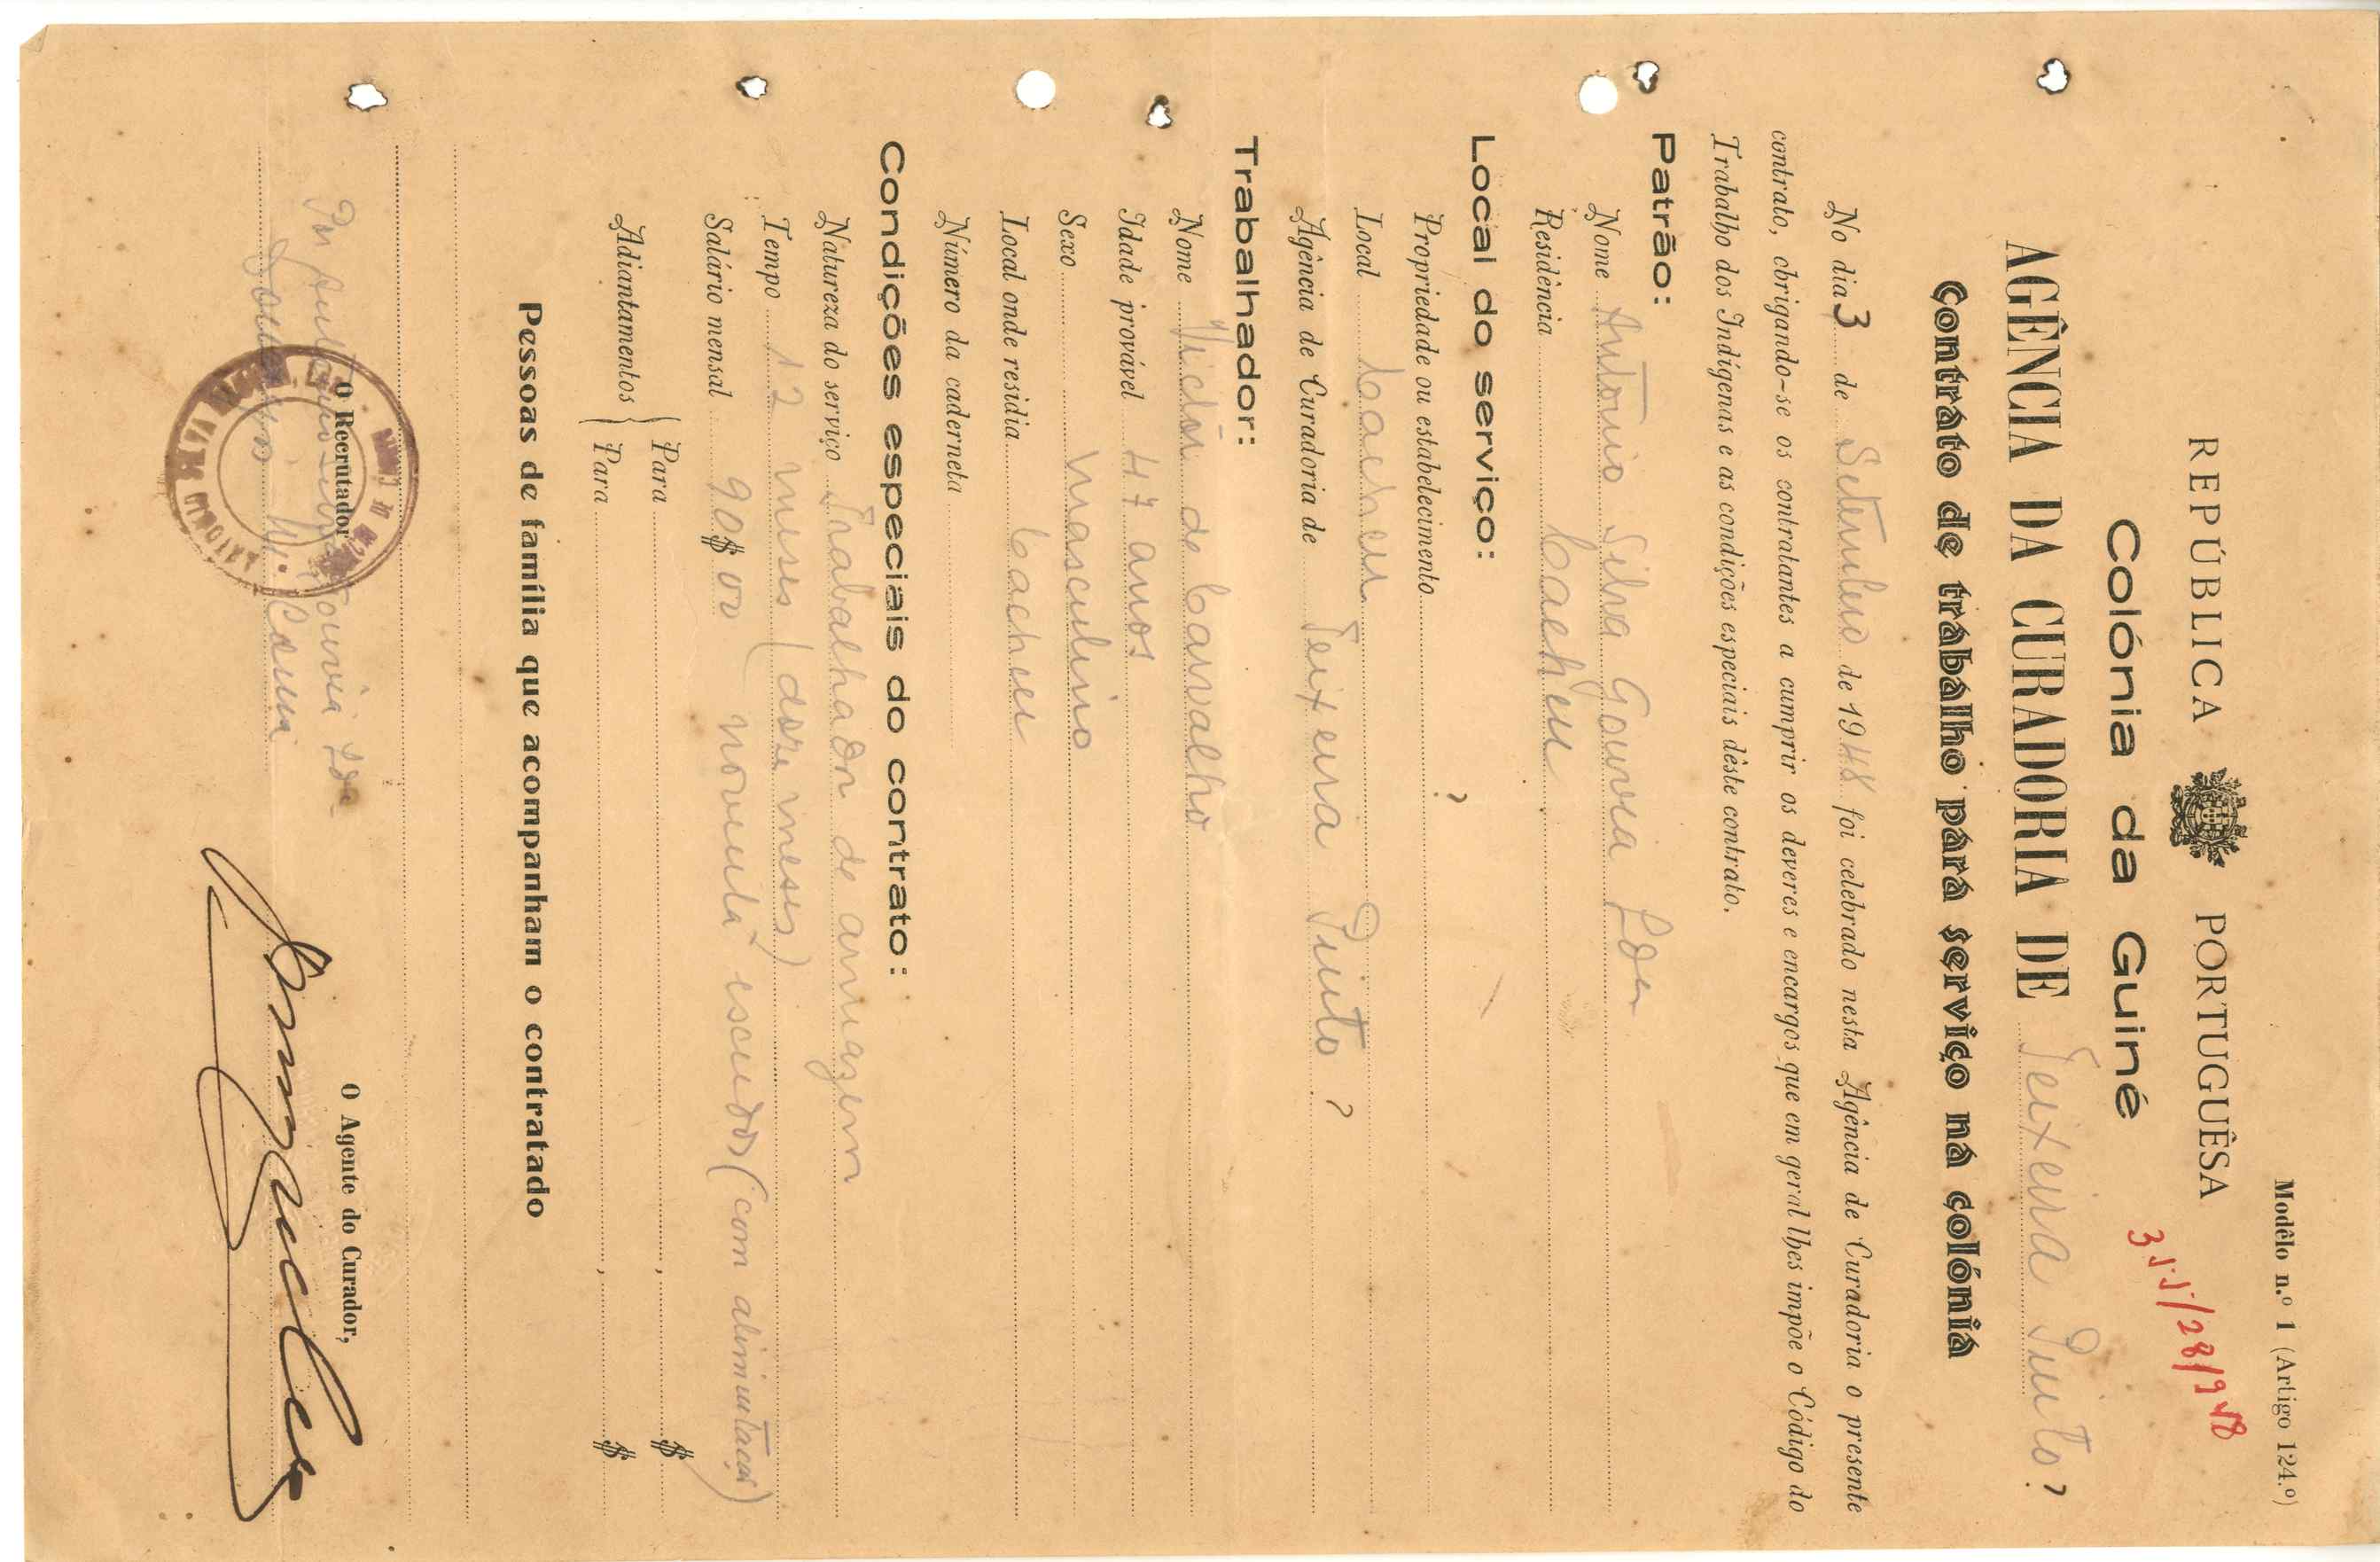 Modêlo n.º 1 (Artigo 124.º)
REPÚBLICA PORTUGUÊSA
355/28/948
Colónia da Guiné
AGÊNCIA DA CURADORIA DE Teixeira Pinto?
Contrato de trabalho para serviço na colónia
No dia 3 de Setembro de 1948 foi celebrado nesta Agência de Curadoria o presente
contrato, obrigando-se os contratantes a cumprir os deveres e encargos que em geral lhes impõe o Código do
Trabalho dos Indígenas e as condições especiais dêste contrato.
Patrão:
Nome António Silva Gouveia Lda
Residência Cacheu
Local do serviço:
Propriedade ou estabelecimento ?
Local Cacheu
Agência de Curadoria de Teixeira Pinto ?
Trabalhador:
Nome Victor de Carvalho
Idade provável 47 anos
Sexo masculino
Local onde residia Cacheu
Número da caderneta
Condições especiais do contrato:
Natureza do serviço Trabalhador de armazem
Tempo 12 meses (doze meses)
Salário mensal 90$00 noventa escudos (com alimentação)
Adiantamentos { Para , $
Para , $
Pessoas de família que acompanham o contratado
O Recrutador
O Agente do Curador,
Por António Silva Gouveia Lda